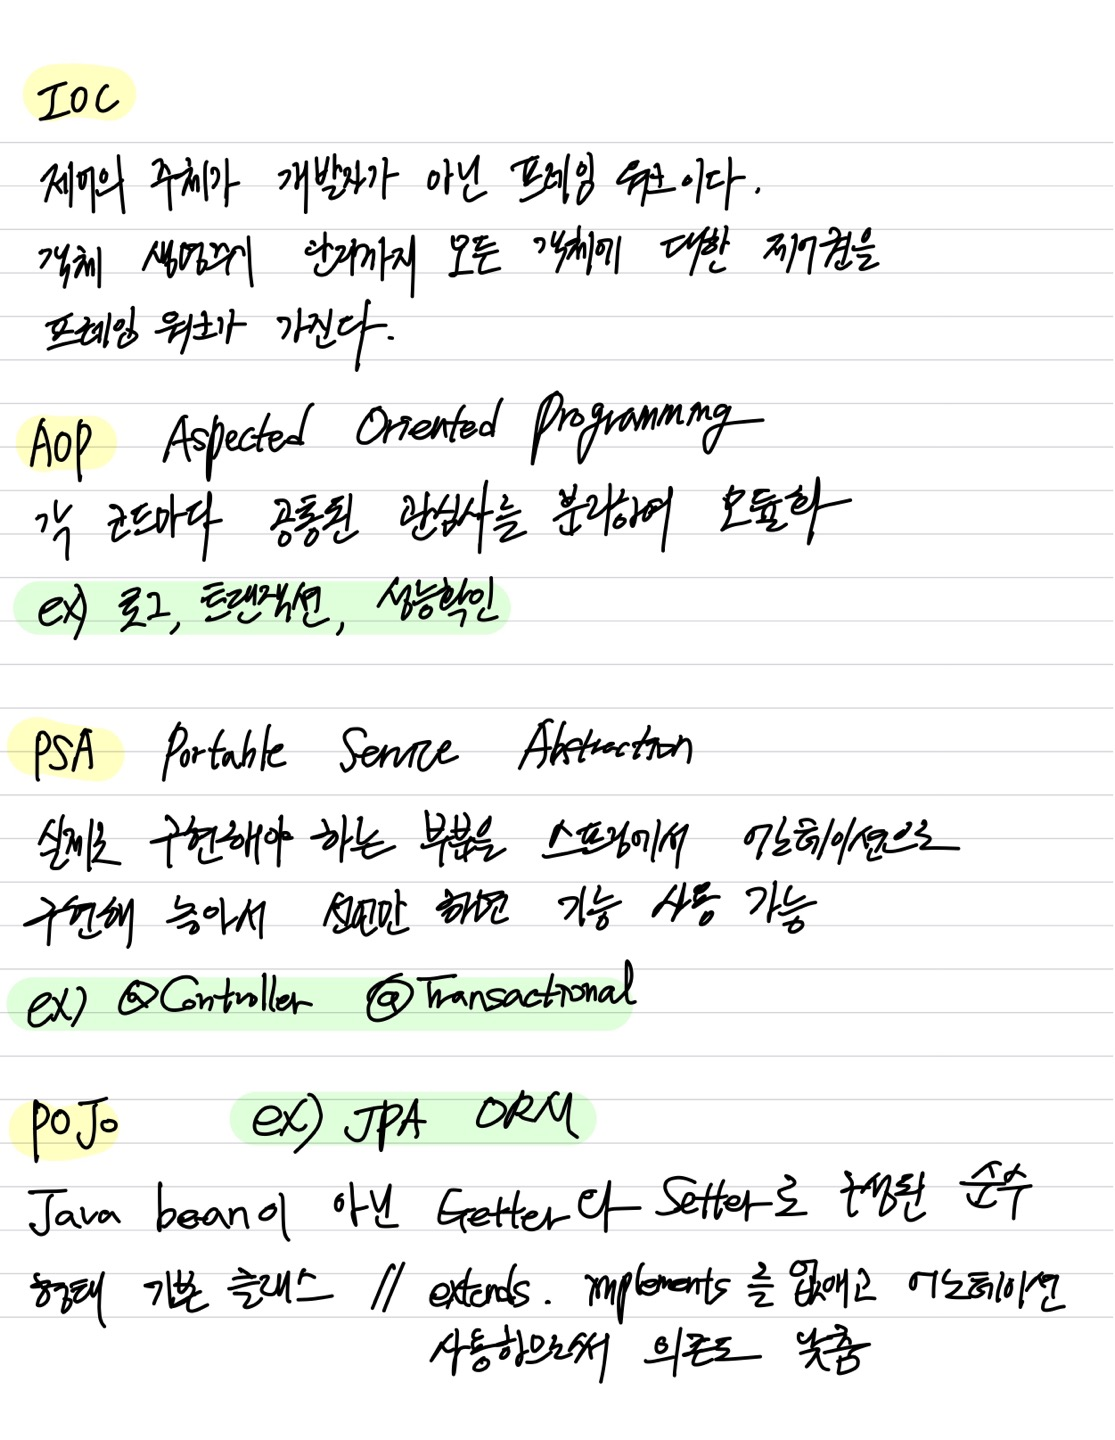 IOC
제어의 주체가 개발자가 아닌 프레임 워크이다.
객체 생명주기 관리까지 모든 객체에 대한 제어권을
프레임 워크가 가진다.
AOP Aspected Oriented Programming
각 코드마다 공통된 관심사를 분리하여 모듈화
ex) 로그, 트랜잭션, 성능확인
PSA Portable Service Abstraction
실제로 구현해야 하는 부분을 스프링에서 어노테이션으로
구현해 놓아서 선언만 하면 기능 사용 가능
ex) @Controller @Transactional
POJO ex) JPA ORM
Java bean이 아닌 Getter와 Setter로 구성된 순수
형태 기본 클래스 // extends. implements를 없애고 어노테이션
사용함으로써 의존도 낮춤